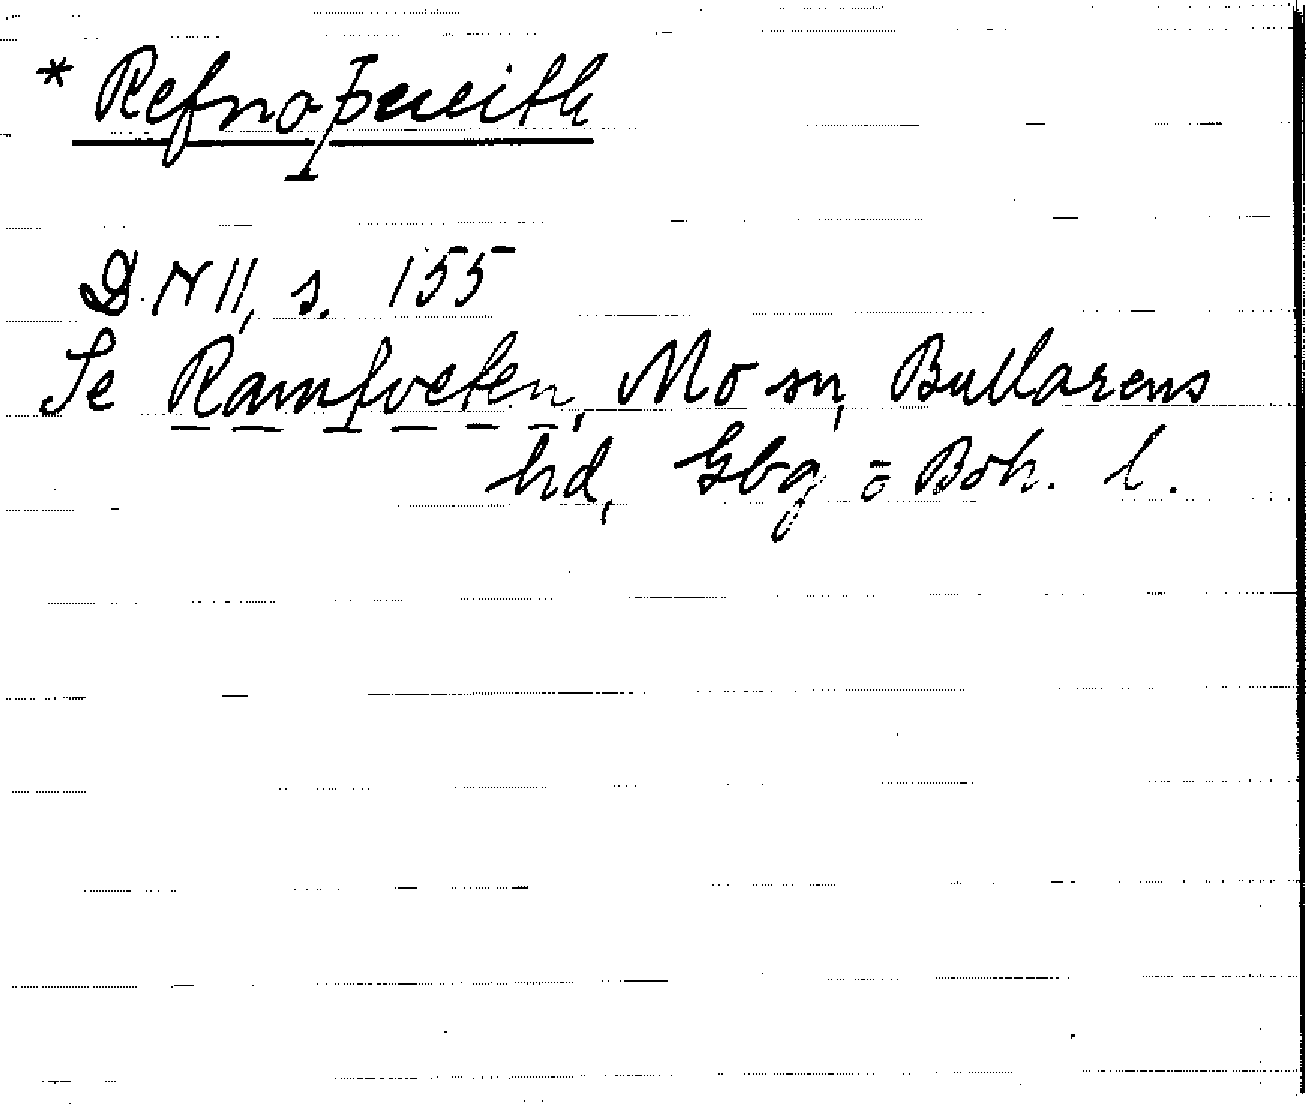 * Refnaþueith
D.N II, s. 155
Se Ramtveten, Mo sn, Bullarens
hd, Gbg o Boh. l.